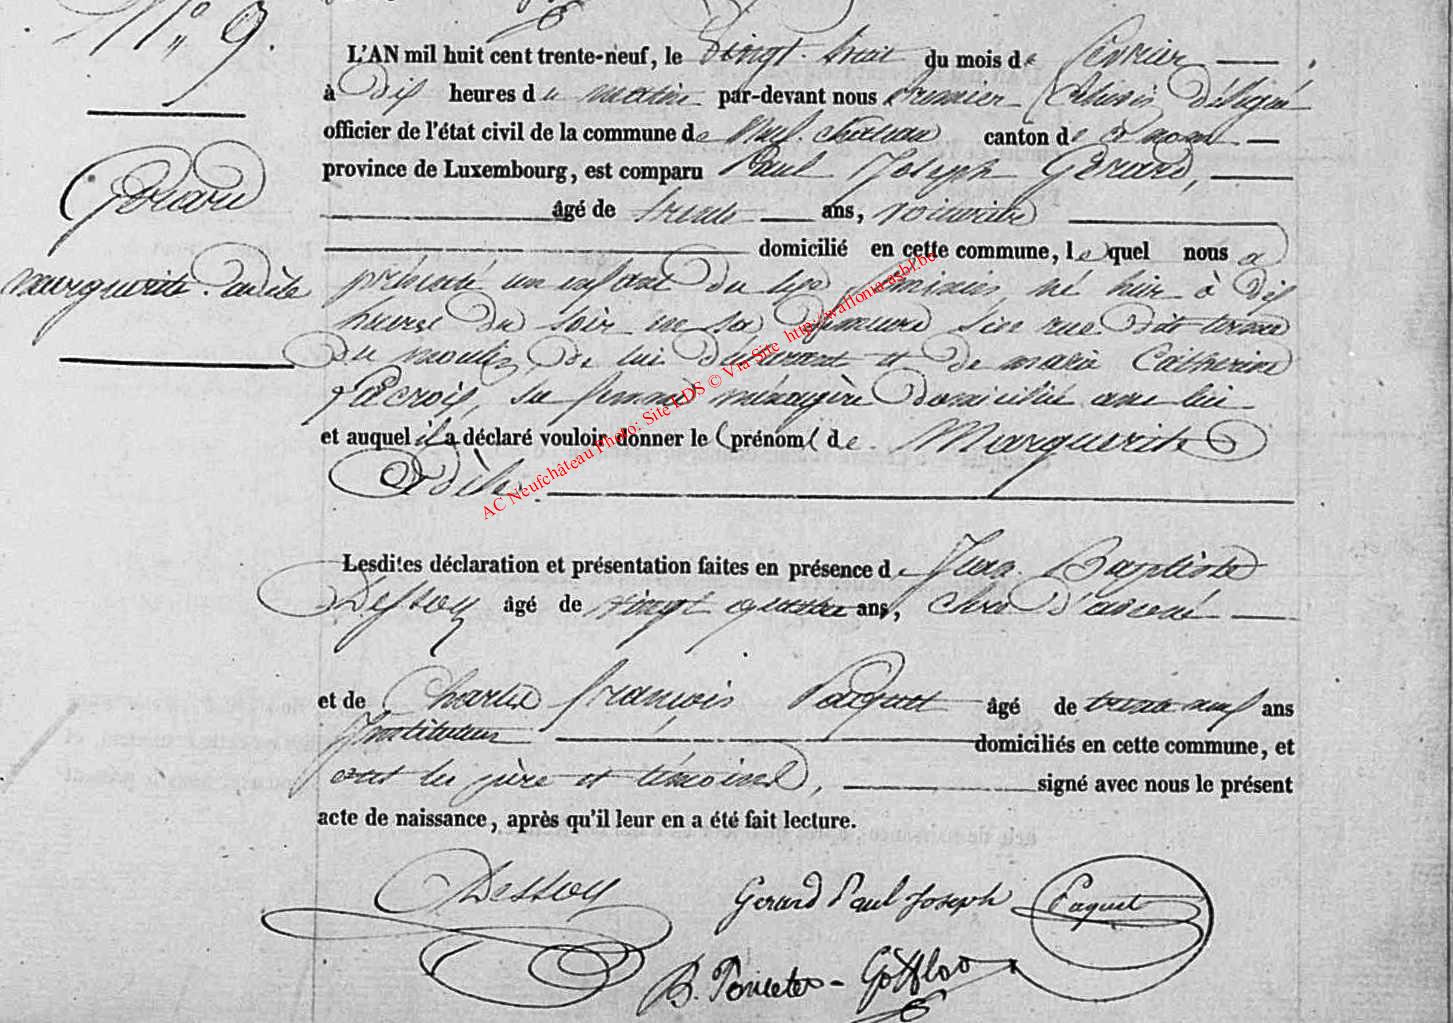 N° 9.
L'AN mil huit cent trente-neuf, le vingt-huit du mois de février
à dix heures du matin par-devant nous premier Echevin délégué
officier de l'état civil de la commune de Neufchateau canton de ce nom
province de Luxembourg, est comparu Paul Joseph Gérard,
âgé de trente ans,
domicilié en cette commune, lequel nous a
Gérard
marguerite. odile
présenté un enfant du sexe féminin né hier à dix
heures du soir en sa demeure sise rue dite
du moulin, de lui déclarant et de marie Catherine
Lacroix, sa femme ménagère domiciliée avec lui
et auquel il a déclaré vouloir donner le prénom de Marguerite
Odile.
Lesdites déclaration et présentation faites en présence de Jean Baptiste
Dessoy âgé de vingt quatre ans, clerc d'avoué
et de Charles françois Paquet âgé de trente neuf ans
Instituteur domiciliés en cette commune, et
ont les père et témoins, signé avec nous le présent
acte de naissance, après qu'il leur en a été fait lecture.
Dessoy Gerard Paul Joseph Paquet
B. Poncelet-
AC Neufchâteau Photo: Site LDS © Via Site http://wallonia-asbl.be